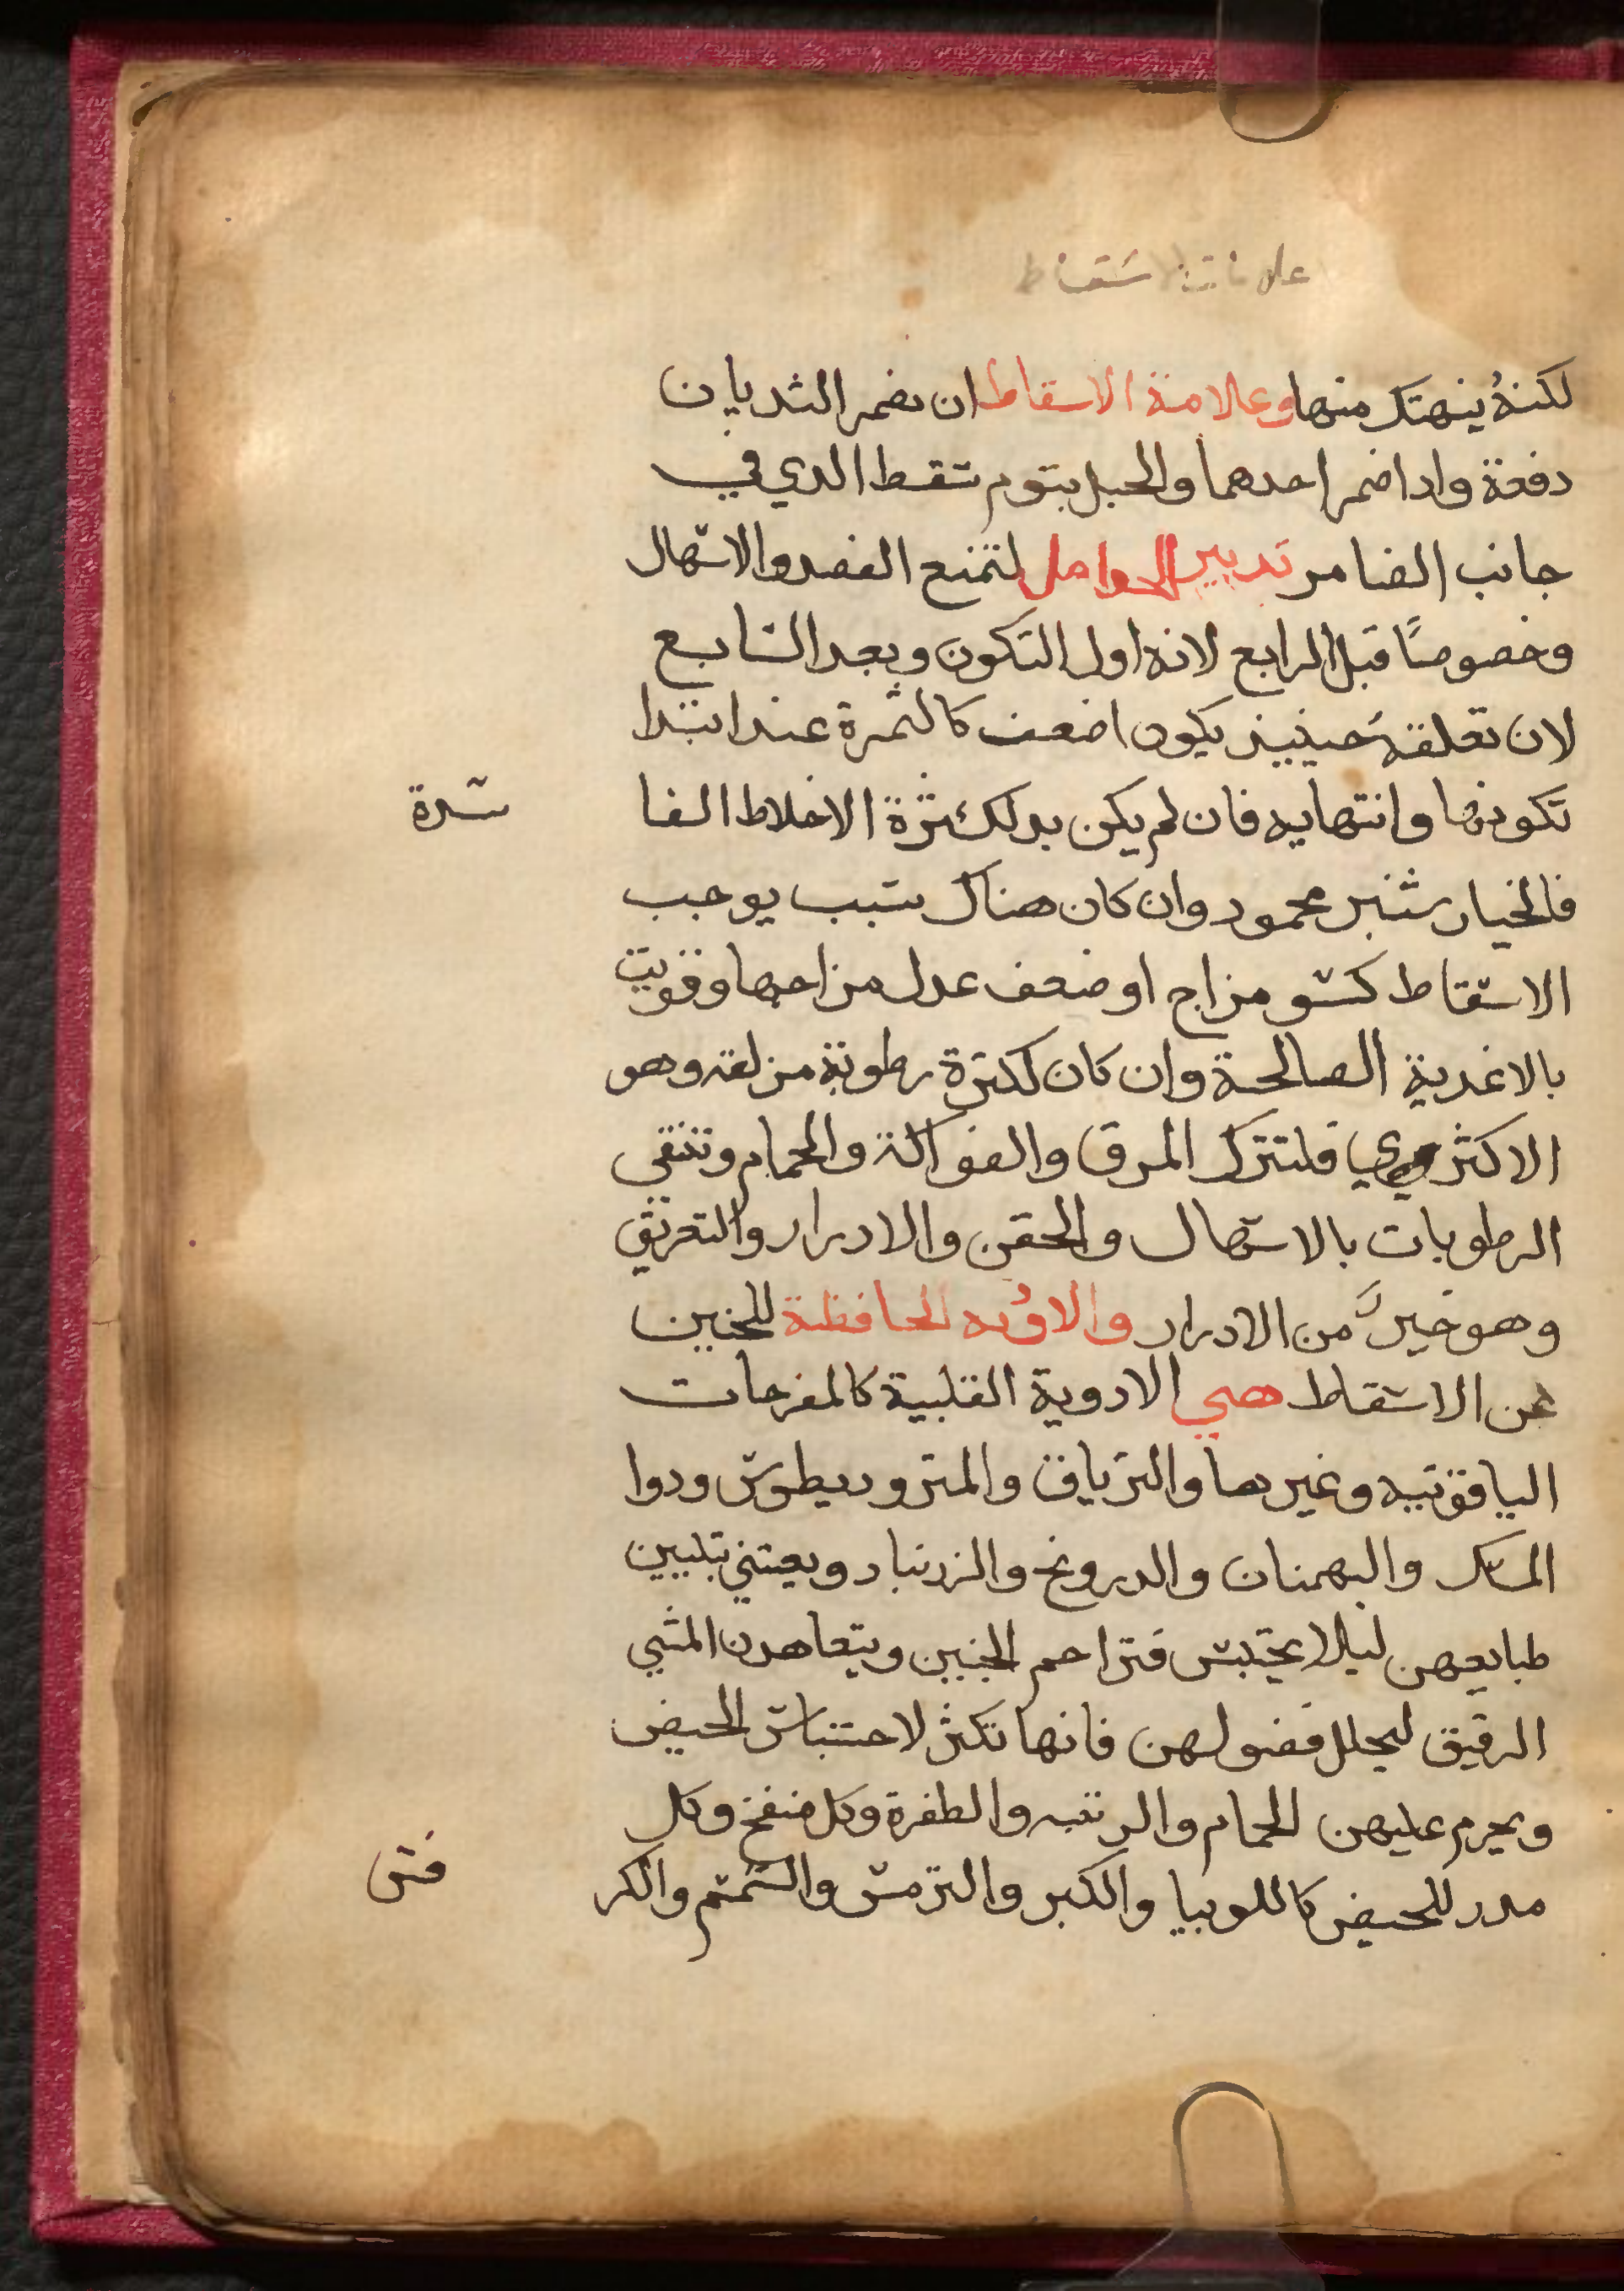 علامات الاسقاط
لكنهُ ينهتك منها وعلامة الاسقاط ان يضمر الثديان
دفعة وادا ضمر احدهما والحبل بتوم تقط الدي في
جانب الضامر تدبير الحوامل لتمنع الفصد والاسهال
وخصوصًا قبل الرابع لانه اول التكون وبعد السابع
لان تعلقه حينيذ يكون اضعف كالثمرة عند ابتدا
تكونها وانتهايه فان لم يكن بد لكثرة الاخلاط الفا
سدة
فالخيار شنبر محمود وان كان هناك سبب يوجب
الاسقاط كسو مزاج او ضعف عدل مزاجها وقويت
بالاغدية الصالحة وان كان لكثرة رطوبة مزلقه وهو
الاكثري فلتترك المرق والفواكة والحمام وتنقي
الرطوبات بالاسهال والحقن والادرار والتعريق
وهو خير من الادرار والاويه الحافظة للجنين
عن الاسقاط هي الادوية القلبية كالمفرحات
الياقوتيه وغيرها والترياق والمترو ديطوس ودوا
المسك والبهمنان والدرونج والزرنباد ويعتني بتليين
طبايعهن ليلا يحتبس فتزاحم الجنين ويتعاهدن المشي
الرقيق ليحلل فضولهن فانها تكثر لاحتباس الحيض
ويحرم عليهن الحمام والوثبه والطفرة وكل منفخ وكل
مدر للحيض كاللوبيا والكبر والترمس والسمسم والكر
فس